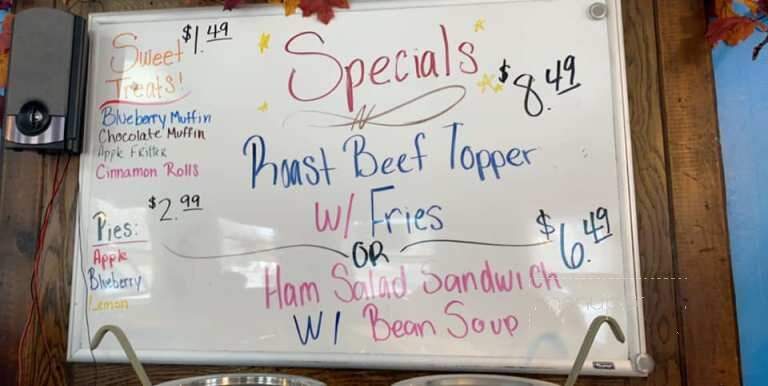 Sweet $1.49
Treats!
Blueberry Muffin
Chocolate Muffin
Apple Fritter
Cinnamon Rolls
Pies: $2.99
Apple
Blueberry
Lemon
Specials
$8.49
Roast Beef Topper
W/ Fries
OR
$6.49
Ham Salad Sandwich
W/ Bean Soup